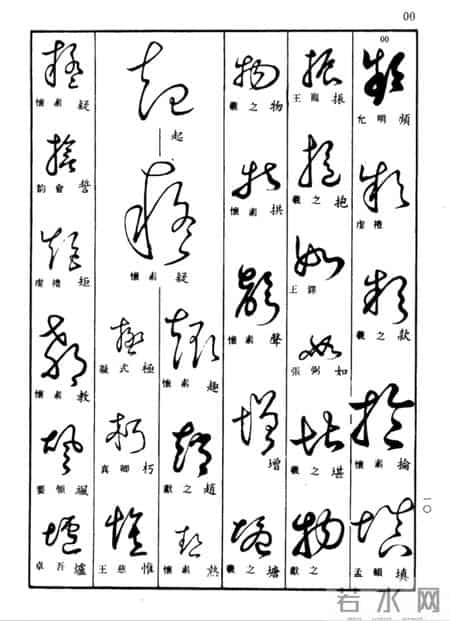 00
00
允明頻
虔禮
羲之款
懷素掄
孟頫填
王寵振
羲之抱
王鐸
張弼如
羲之堪
獻之
羲之物
懷素拱
懷素聲
增
羲之塘
起
懷素疑
懷素趣
獻之趙
懷素熱
凝式極
真卿朽
王慈惟
懷素疑
韵會誓
虔禮矩
懷素教
要領颯
卓吾爐
一〇
若水网